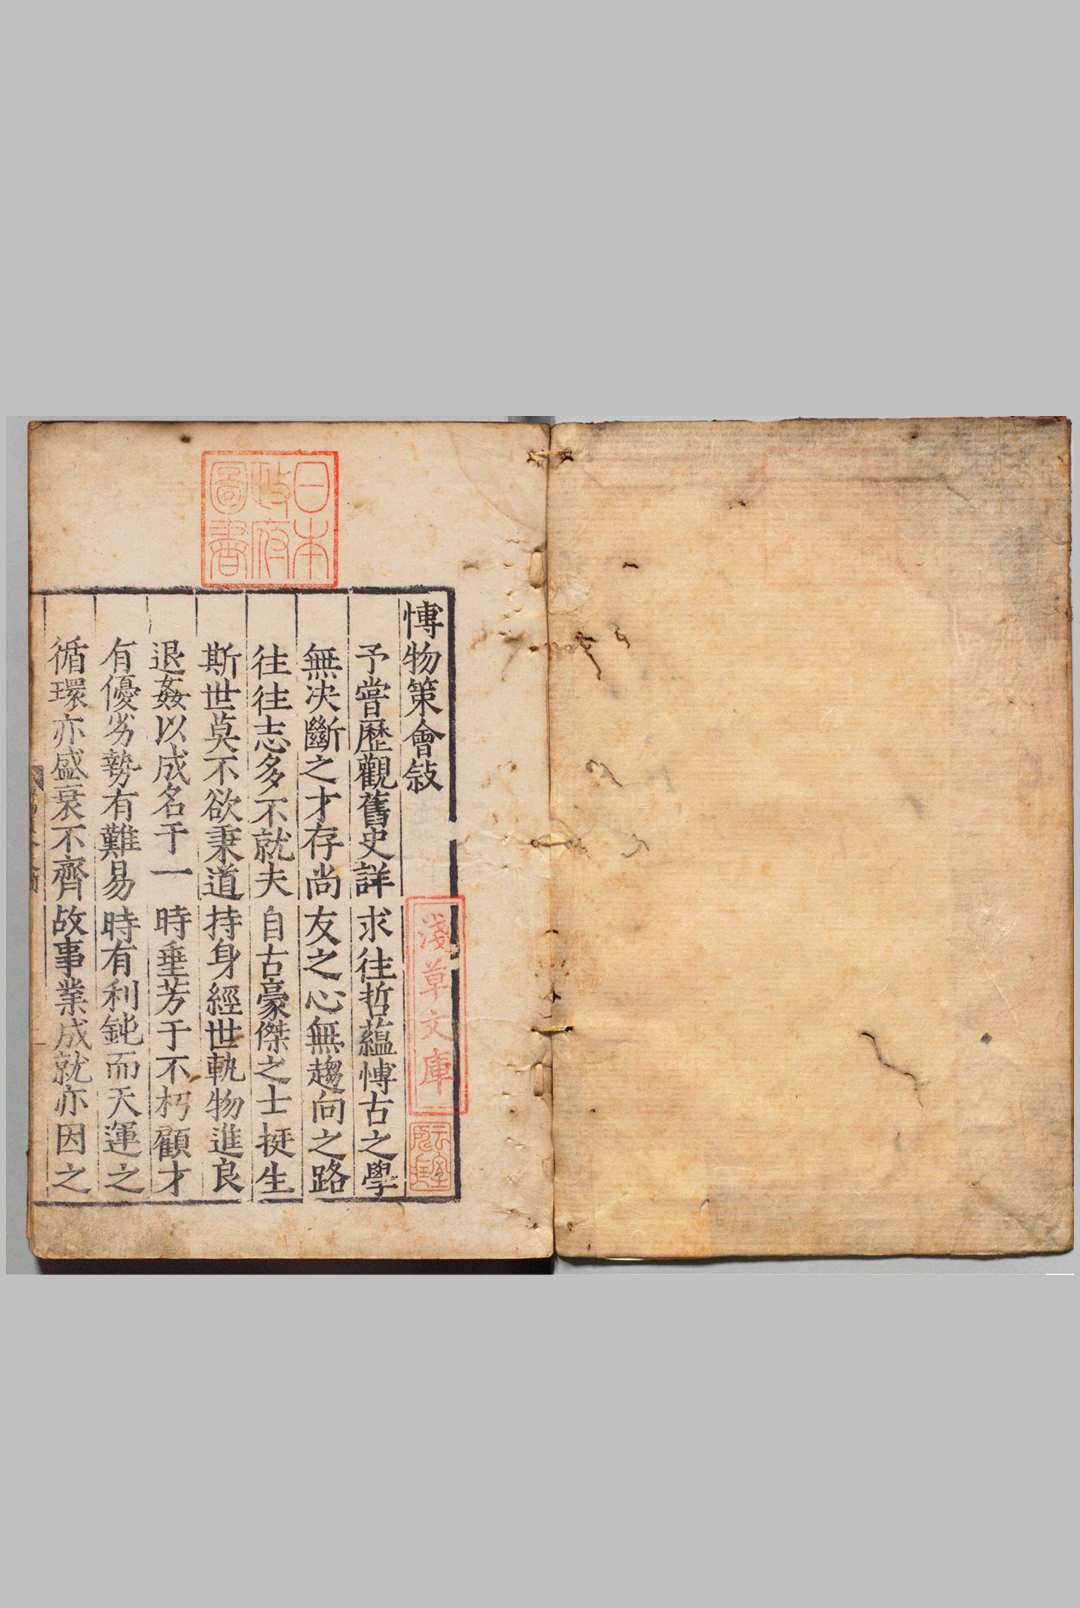 愽物策會敍
予嘗歷觀舊史詳求往哲蘊愽古之學
無决斷之才存尚友之心無趨向之路
往往志多不就夫自古豪傑之士挺生
斯世莫不欲秉道持身經世軌物進良
退姦以成名于一時垂芳于不朽顧才
有優劣勢有難易時有利鈍而天運之
循環亦盛衰不齊故事業成就亦因之
日本
政府
圖書
淺草文庫